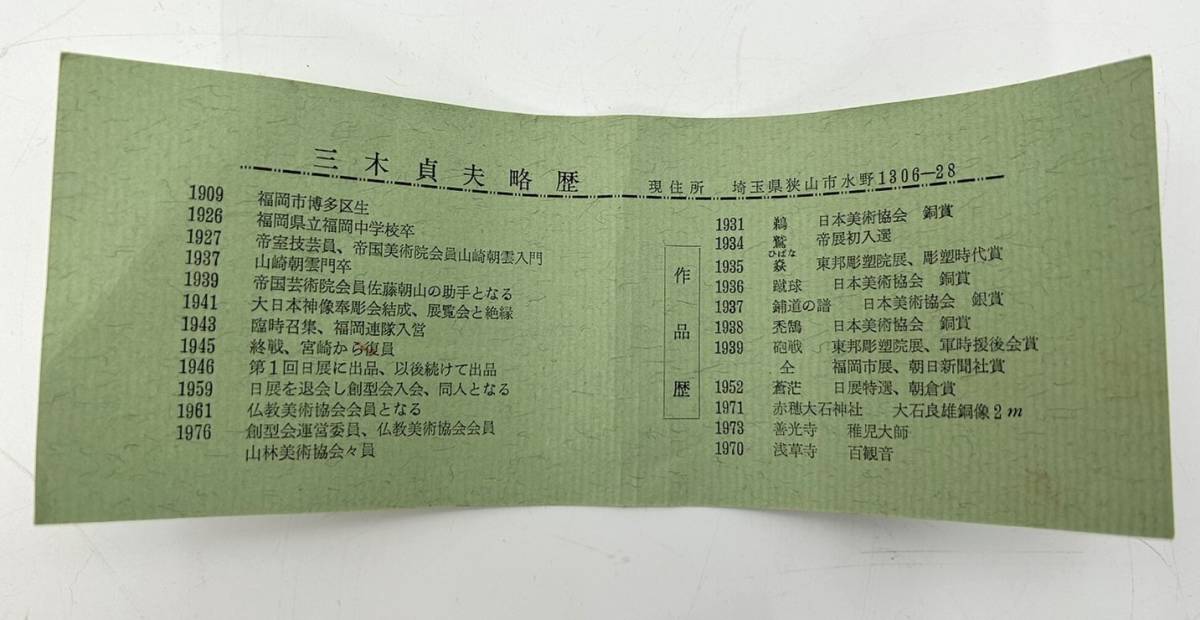 三木貞夫略歴
1909 福岡市博多区生
1926 福岡県立福岡中学校卒
1927 帝室技芸員、帝国美術院会員山崎朝雲入門
1937 山崎朝雲門卒
1939 帝国芸術院会員佐藤朝山の助手となる
1941 大日本神像奉彫会結成、展覧会と絶縁
1943 臨時召集、福岡連隊入営
1945 終戦、宮崎から復員
1946 第1回日展に出品、以後続けて出品
1959 日展を退会し創型会入会、同人となる
1961 仏教美術協会会員となる
1976 創型会運営委員、仏教美術協会会員
山林美術協会々員
現住所 埼玉県狭山市水野1306-28
作品歴
1931 鵜 日本美術協会 銅賞
1934 鷲 帝展初入選
ひばな
1935 焱 東邦彫塑院展、彫塑時代賞
1936 蹴球 日本美術協会 銅賞
1937 鋪道の譜 日本美術協会 銀賞
1938 禿鵠 日本美術協会 銅賞
1939 砲戦 東邦彫塑院展、軍時援後会賞
仝 福岡市展、朝日新聞社賞
1952 蒼茫 日展特選、朝倉賞
1971 赤穂大石神社 大石良雄銅像2m
1973 善光寺 稚児大師
1970 浅草寺 百観音